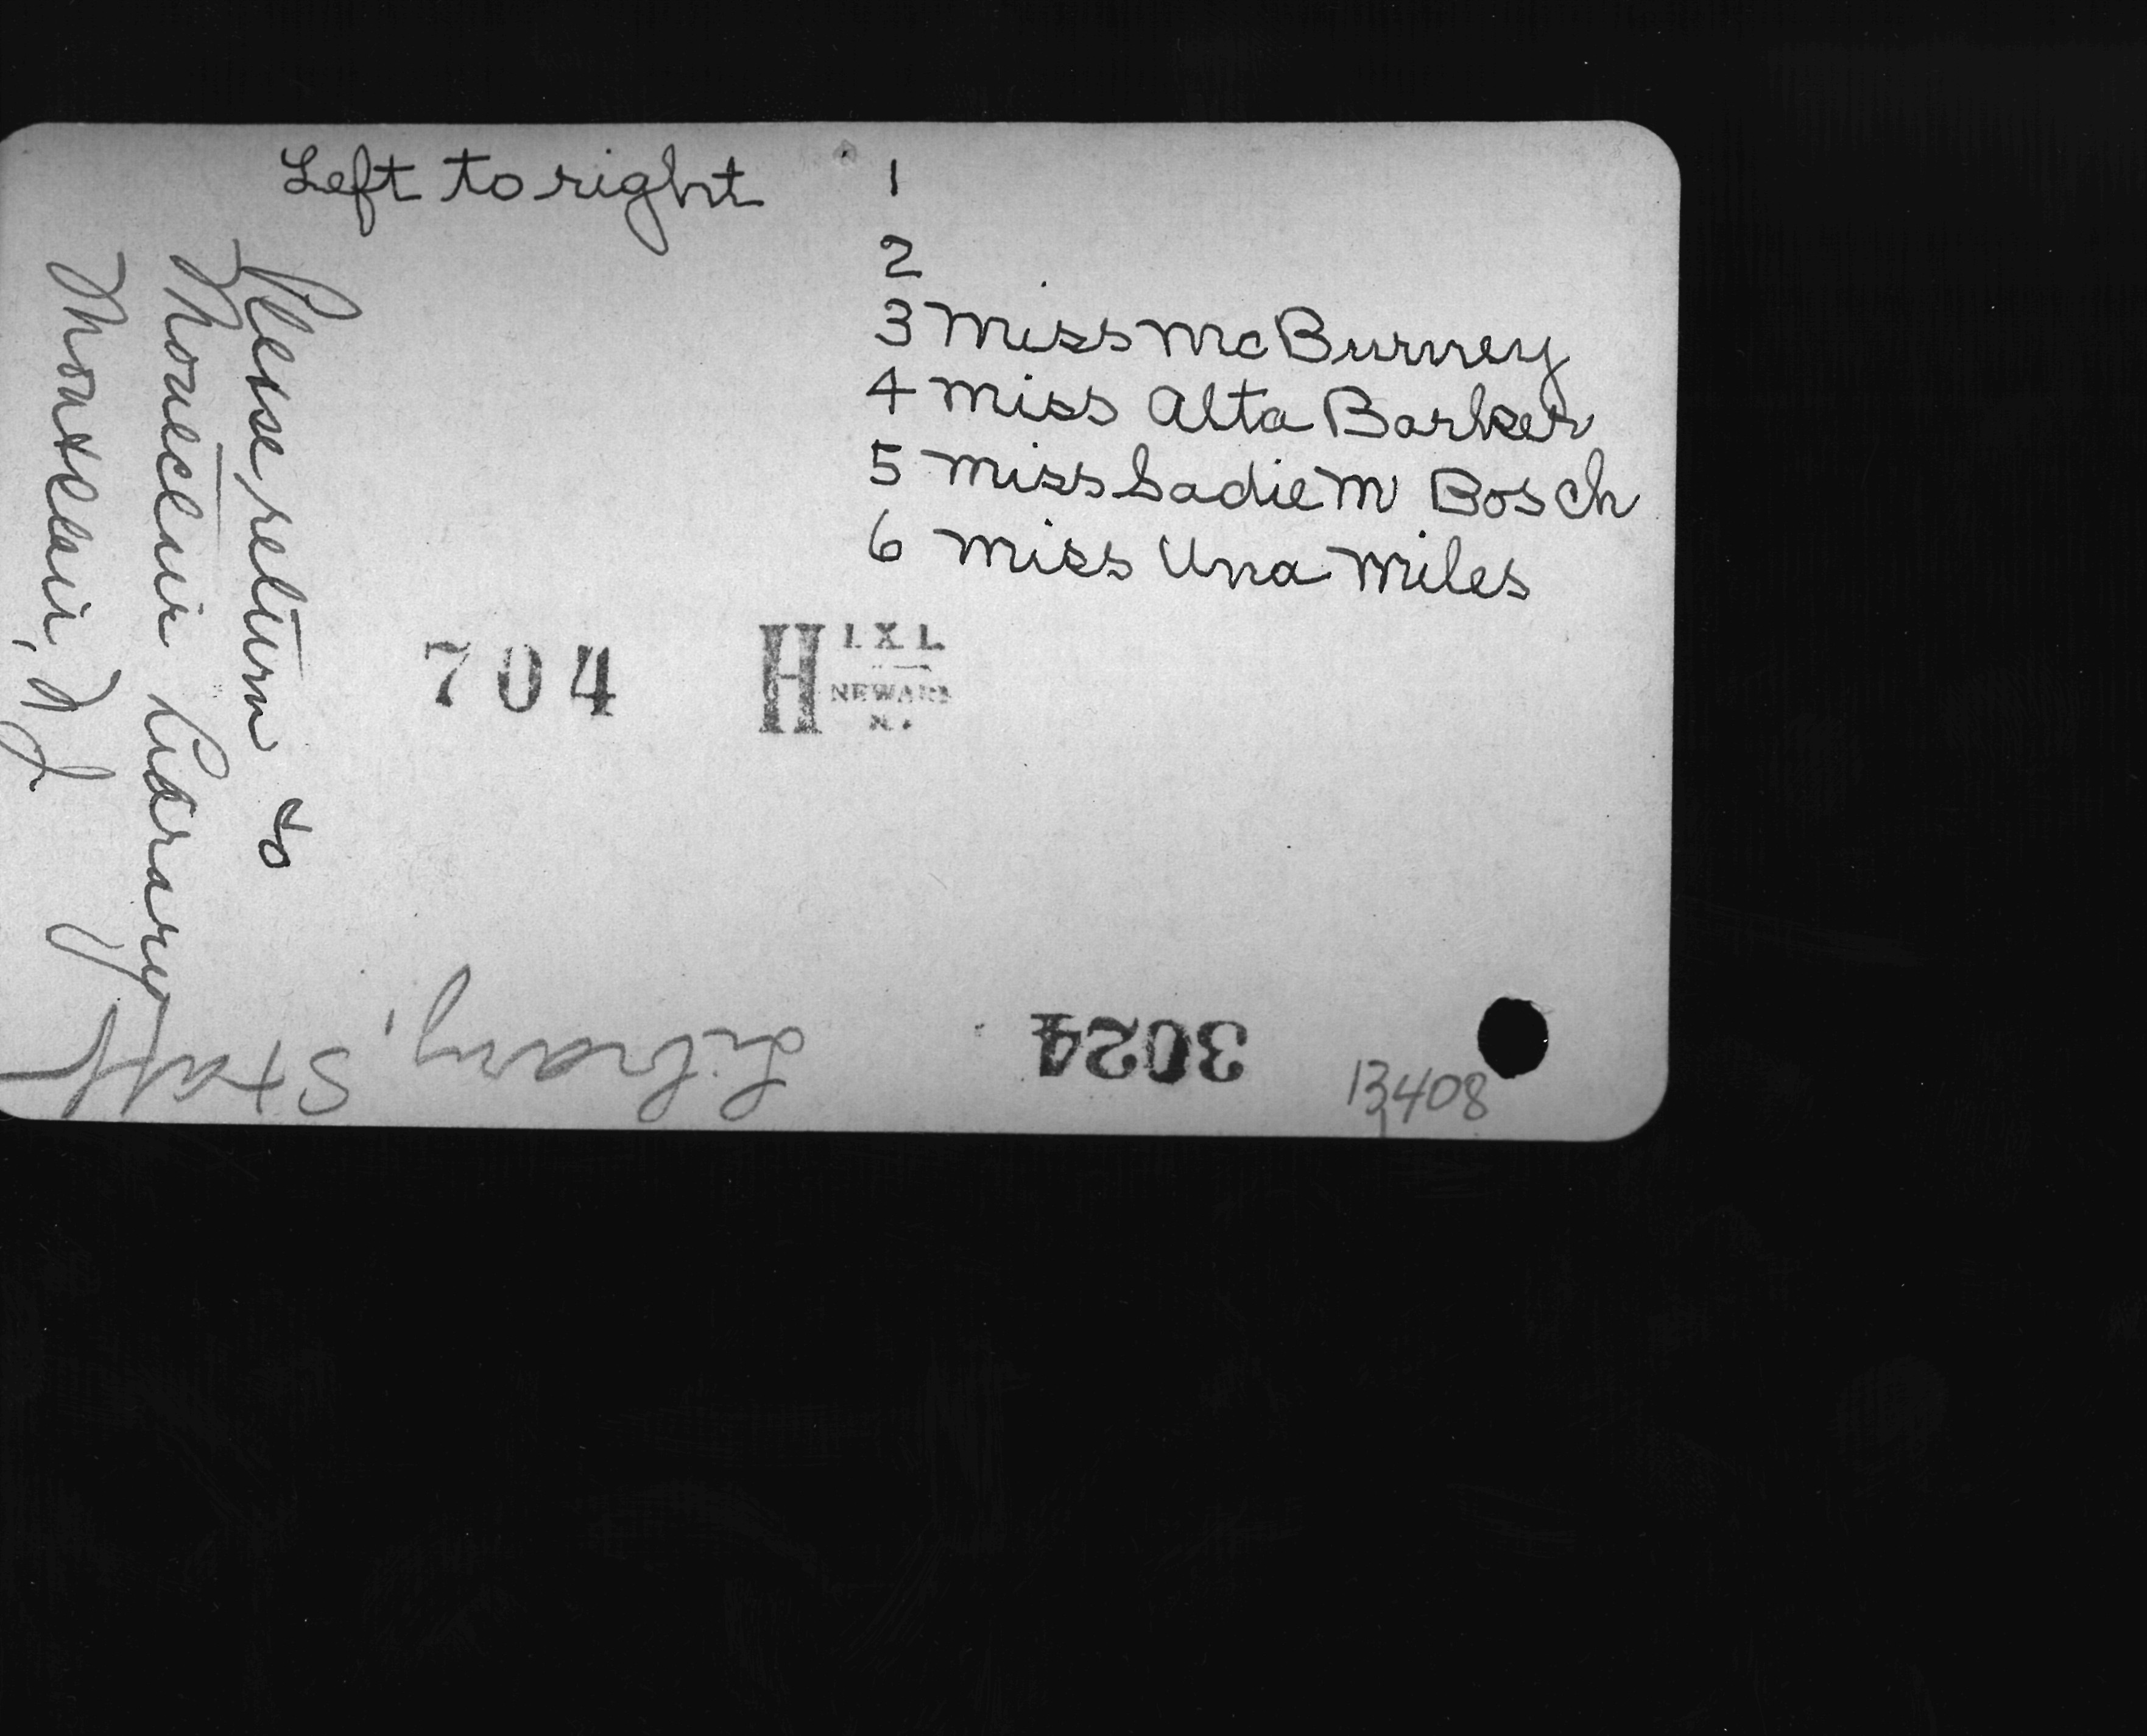 Left to right
1
2
3 Miss McBurney
4 Miss Alta Barker
5 Miss Sadie M Bosch
6 Miss Una Miles
Please return to
Montclair Library
Montclair, NJ
704
H I X L
NEWARK
N.J.
Library, Staff
3024
13408